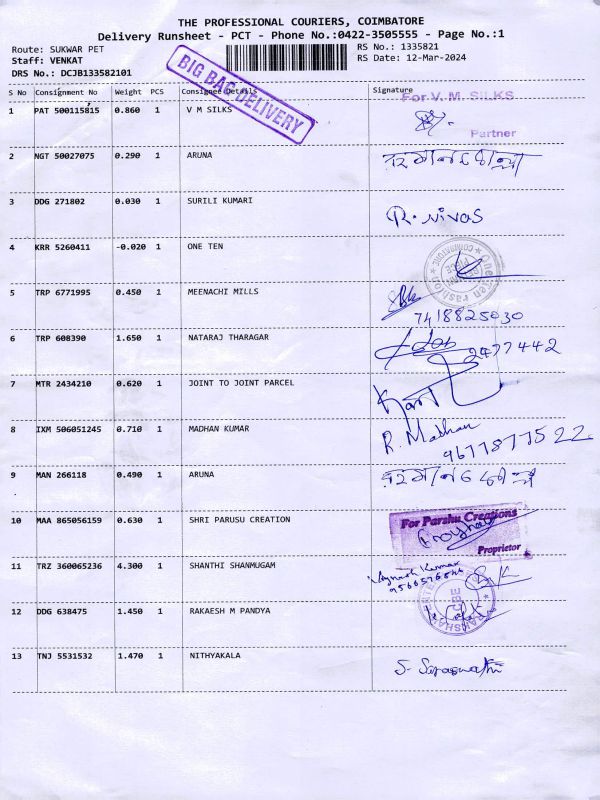 THE PROFESSIONAL COURIERS, COIMBATORE
Delivery Runsheet - PCT - Phone No.:0422-3505555 - Page No.:1
Route: SUKWAR PET
RS No.: 1335821
Staff: VENKAT
RS Date: 12-Mar-2024
DRS No.: DCJB133582101
BIG BAG DELIVERY
S No Consignment No Weight PCS Consignee Details Signature
For V. M. SILKS
1 PAT 500115815 0.860 1 V M SILKS
Partner
2 NGT 50027075 0.290 1 ARUNA
3 DDG 271802 0.030 1 SURILI KUMARI
R. Nivas
4 KRR 5260411 -0.020 1 ONE TEN
5 TRP 6771995 0.450 1 MEENACHI MILLS
7418825030
6 TRP 608390 1.650 1 NATARAJ THARAGAR
2477442
7 MTR 2434210 0.620 1 JOINT TO JOINT PARCEL
8 IXM 506051245 0.710 1 MADHAN KUMAR
R. Madhan
9677877522
9 MAN 266118 0.490 1 ARUNA
10 MAA 865056159 0.630 1 SHRI PARUSU CREATION
For Parshu Creations
Proprietor
11 TRZ 360065236 4.300 1 SHANTHI SHANMUGAM
12 DDG 638475 1.450 1 RAKAESH M PANDYA
13 TNJ 5531532 1.470 1 NITHYAKALA
S. Saraswathi